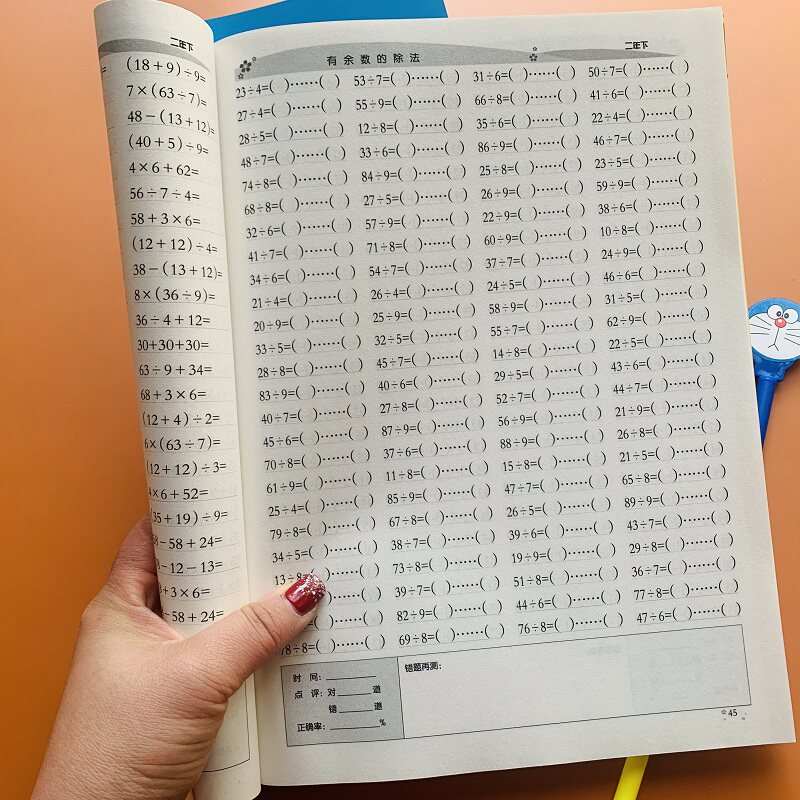 二年下
(18+9)÷9=
7×(63÷7)=
48-(13+12)=
(40+5)÷9=
4×6+62=
56÷7÷4=
58+3×6=
(12+12)÷4=
38-(13+12)=
8×(36÷9)=
36÷4+12=
30+30+30=
63÷9+34=
68+3×6=
(12+4)÷2=
6×(63÷7)=
(12+12)÷3=
4×6+52=
(35+19)÷9=
-58+24=
-12-13=
+3×6=
-58+24=
有余数的除法 二年下
23÷4=( )……( ) 53÷7=( )……( ) 31÷6=( )……( ) 50÷7=( )……( )
27÷4=( )……( ) 55÷9=( )……( ) 66÷8=( )……( ) 41÷6=( )……( )
28÷5=( )……( ) 12÷8=( )……( ) 35÷6=( )……( ) 22÷4=( )……( )
48÷7=( )……( ) 33÷6=( )……( ) 86÷9=( )……( ) 46÷7=( )……( )
74÷8=( )……( ) 84÷9=( )……( ) 25÷8=( )……( ) 23÷5=( )……( )
68÷8=( )……( ) 27÷5=( )……( ) 26÷9=( )……( ) 59÷9=( )……( )
32÷6=( )……( ) 57÷9=( )……( ) 22÷9=( )……( ) 38÷6=( )……( )
41÷7=( )……( ) 71÷8=( )……( ) 60÷9=( )……( ) 10÷8=( )……( )
34÷6=( )……( ) 54÷7=( )……( ) 37÷7=( )……( ) 24÷9=( )……( )
21÷4=( )……( ) 26÷4=( )……( ) 24÷5=( )……( ) 46÷6=( )……( )
20÷9=( )……( ) 25÷9=( )……( ) 58÷9=( )……( ) 31÷5=( )……( )
33÷5=( )……( ) 32÷5=( )……( ) 55÷7=( )……( ) 62÷9=( )……( )
28÷8=( )……( ) 45÷7=( )……( ) 14÷8=( )……( ) 22÷5=( )……( )
83÷9=( )……( ) 40÷6=( )……( ) 29÷5=( )……( ) 43÷6=( )……( )
40÷7=( )……( ) 27÷8=( )……( ) 52÷7=( )……( ) 44÷7=( )……( )
45÷6=( )……( ) 87÷9=( )……( ) 56÷9=( )……( ) 21÷9=( )……( )
70÷8=( )……( ) 37÷6=( )……( ) 88÷9=( )……( ) 26÷8=( )……( )
61÷9=( )……( ) 11÷8=( )……( ) 15÷8=( )……( ) 21÷5=( )……( )
25÷4=( )……( ) 85÷9=( )……( ) 47÷7=( )……( ) 65÷8=( )……( )
79÷8=( )……( ) 67÷8=( )……( ) 26÷5=( )……( ) 89÷9=( )……( )
34÷5=( )……( ) 38÷7=( )……( ) 39÷6=( )……( ) 43÷7=( )……( )
13÷8=( )……( ) 73÷8=( )……( ) 19÷9=( )……( ) 29÷8=( )……( )
)……( ) 39÷7=( )……( ) 51÷8=( )……( ) 36÷7=( )……( )
=( )……( ) 82÷9=( )……( ) 44÷6=( )……( ) 77÷8=( )……( )
78÷8=( )……( ) 69÷8=( )……( ) 76÷8=( )……( ) 47÷6=( )……( )
时 间:________
点 评:对______道
错______道
正确率:________%
错题再测:
45